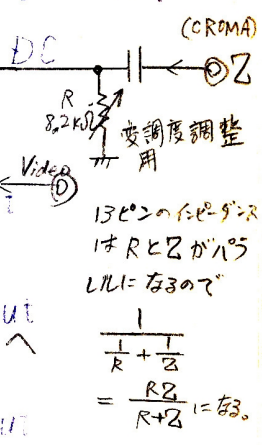 (CROMA)
DC
Z
R
8.2kΩ
変調度調整
用
Video
13ピンのインピーダンス
は RとZがパラ
レルになるので
1
1/R + 1/Z
= RZ/R+Z になる。
ut
へ
ut